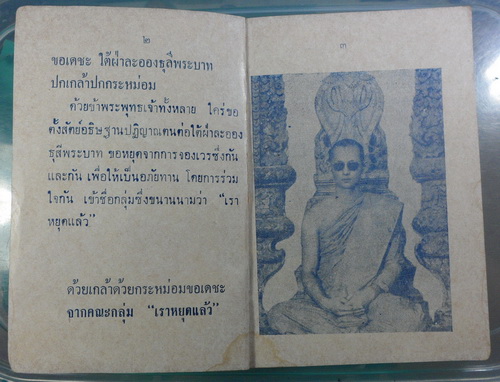 ๒
ขอเดชะ ใต้ฝ่าละอองธุลีพระบาท
ปกเกล้าปกกระหม่อม
ด้วยข้าพระพุทธเจ้าทั้งหลาย ใคร่ขอ
ตั้งสัตย์อธิษฐานปฏิญาณตนต่อใต้ฝ่าละออง
ธุลีพระบาท ขอหยุดจากการจองเวรซึ่งกัน
และกัน เพื่อให้เป็นอภัยทาน โดยการร่วม
ใจกัน เข้าชื่อกลุ่มซึ่งขนานนามว่า “เรา
หยุดแล้ว”
ด้วยเกล้าด้วยกระหม่อมขอเดชะ
จากคณะกลุ่ม “เราหยุดแล้ว”
๓